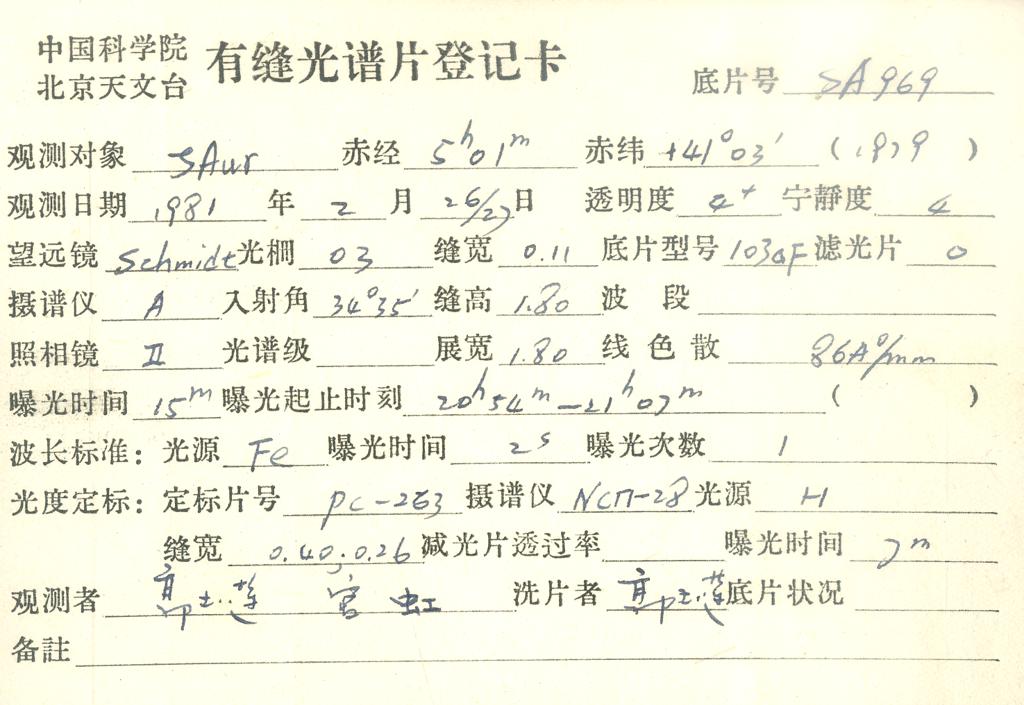 中国科学院
北京天文台
有缝光谱片登记卡
底片号 SA969
观测对象 SAur 赤经 5h01m 赤纬 +41°03′ (1979)
观测日期 1981 年 2 月 26/27 日 透明度 4+ 宁静度 4
望远镜 Schmidt 光栅 03 缝宽 0.11 底片型号 103aF 滤光片 0
摄谱仪 A 入射角 34°35′ 缝高 1.80 波段
照相镜 II 光谱级 展宽 1.80 线色散 86A°/mm
曝光时间 15m 曝光起止时刻 20h54m—21h07m ( )
波长标准: 光源 Fe 曝光时间 2s 曝光次数 1
光度定标: 定标片号 PC-263 摄谱仪 NCП-28 光源 H
缝宽 0.40, 0.26 减光片透过率 曝光时间 7m
观测者 宫虹 洗片者 底片状况
备註